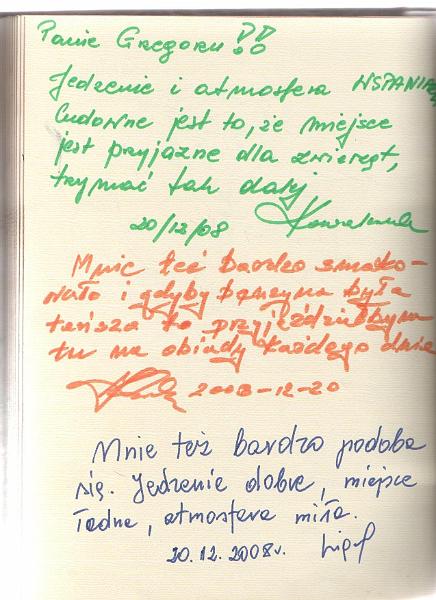 Panie Gregoru !!
Jedzenie i atmosfera WSPANIAŁ
Cudowne jest to, że miejsce
jest przyjazne dla zwierząt,
trzymać tak dalej
20/12/08
Mnie też bardzo smako-
wało i gdyby benzyna była
tańsza to przyjeżdżałbym
tu na obiady każdego dnia
2008-12-20
Mnie też bardzo podoba
się. Jedzenie dobre, miejsce
ładne, atmosfera miła.
20.12.2008r.